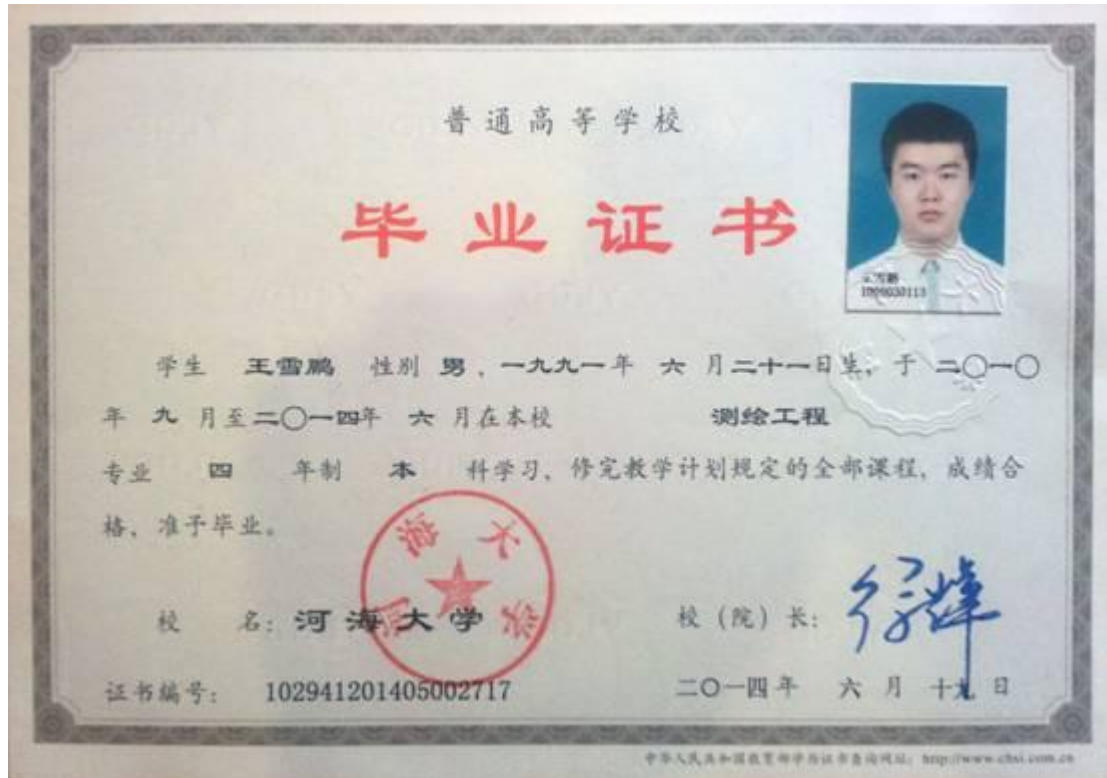 普通高等学校
毕业证书
1006030113
学生 王雪鹏 性别 男、一九九一年 六 月二十一日生，于 二〇一〇
年 九 月至二〇一四年 六 月在本校 测绘工程
专业 四 年制 本 科学习、修完教学计划规定的全部课程，成绩合
格、准予毕业。
河海大学
校 名：河海大学 校（院）长：
证书编号： 102941201405002717 二〇一四年 六 月 十九 日
中华人民共和国教育部学历证书查询网址：http://www.chsi.com.cn